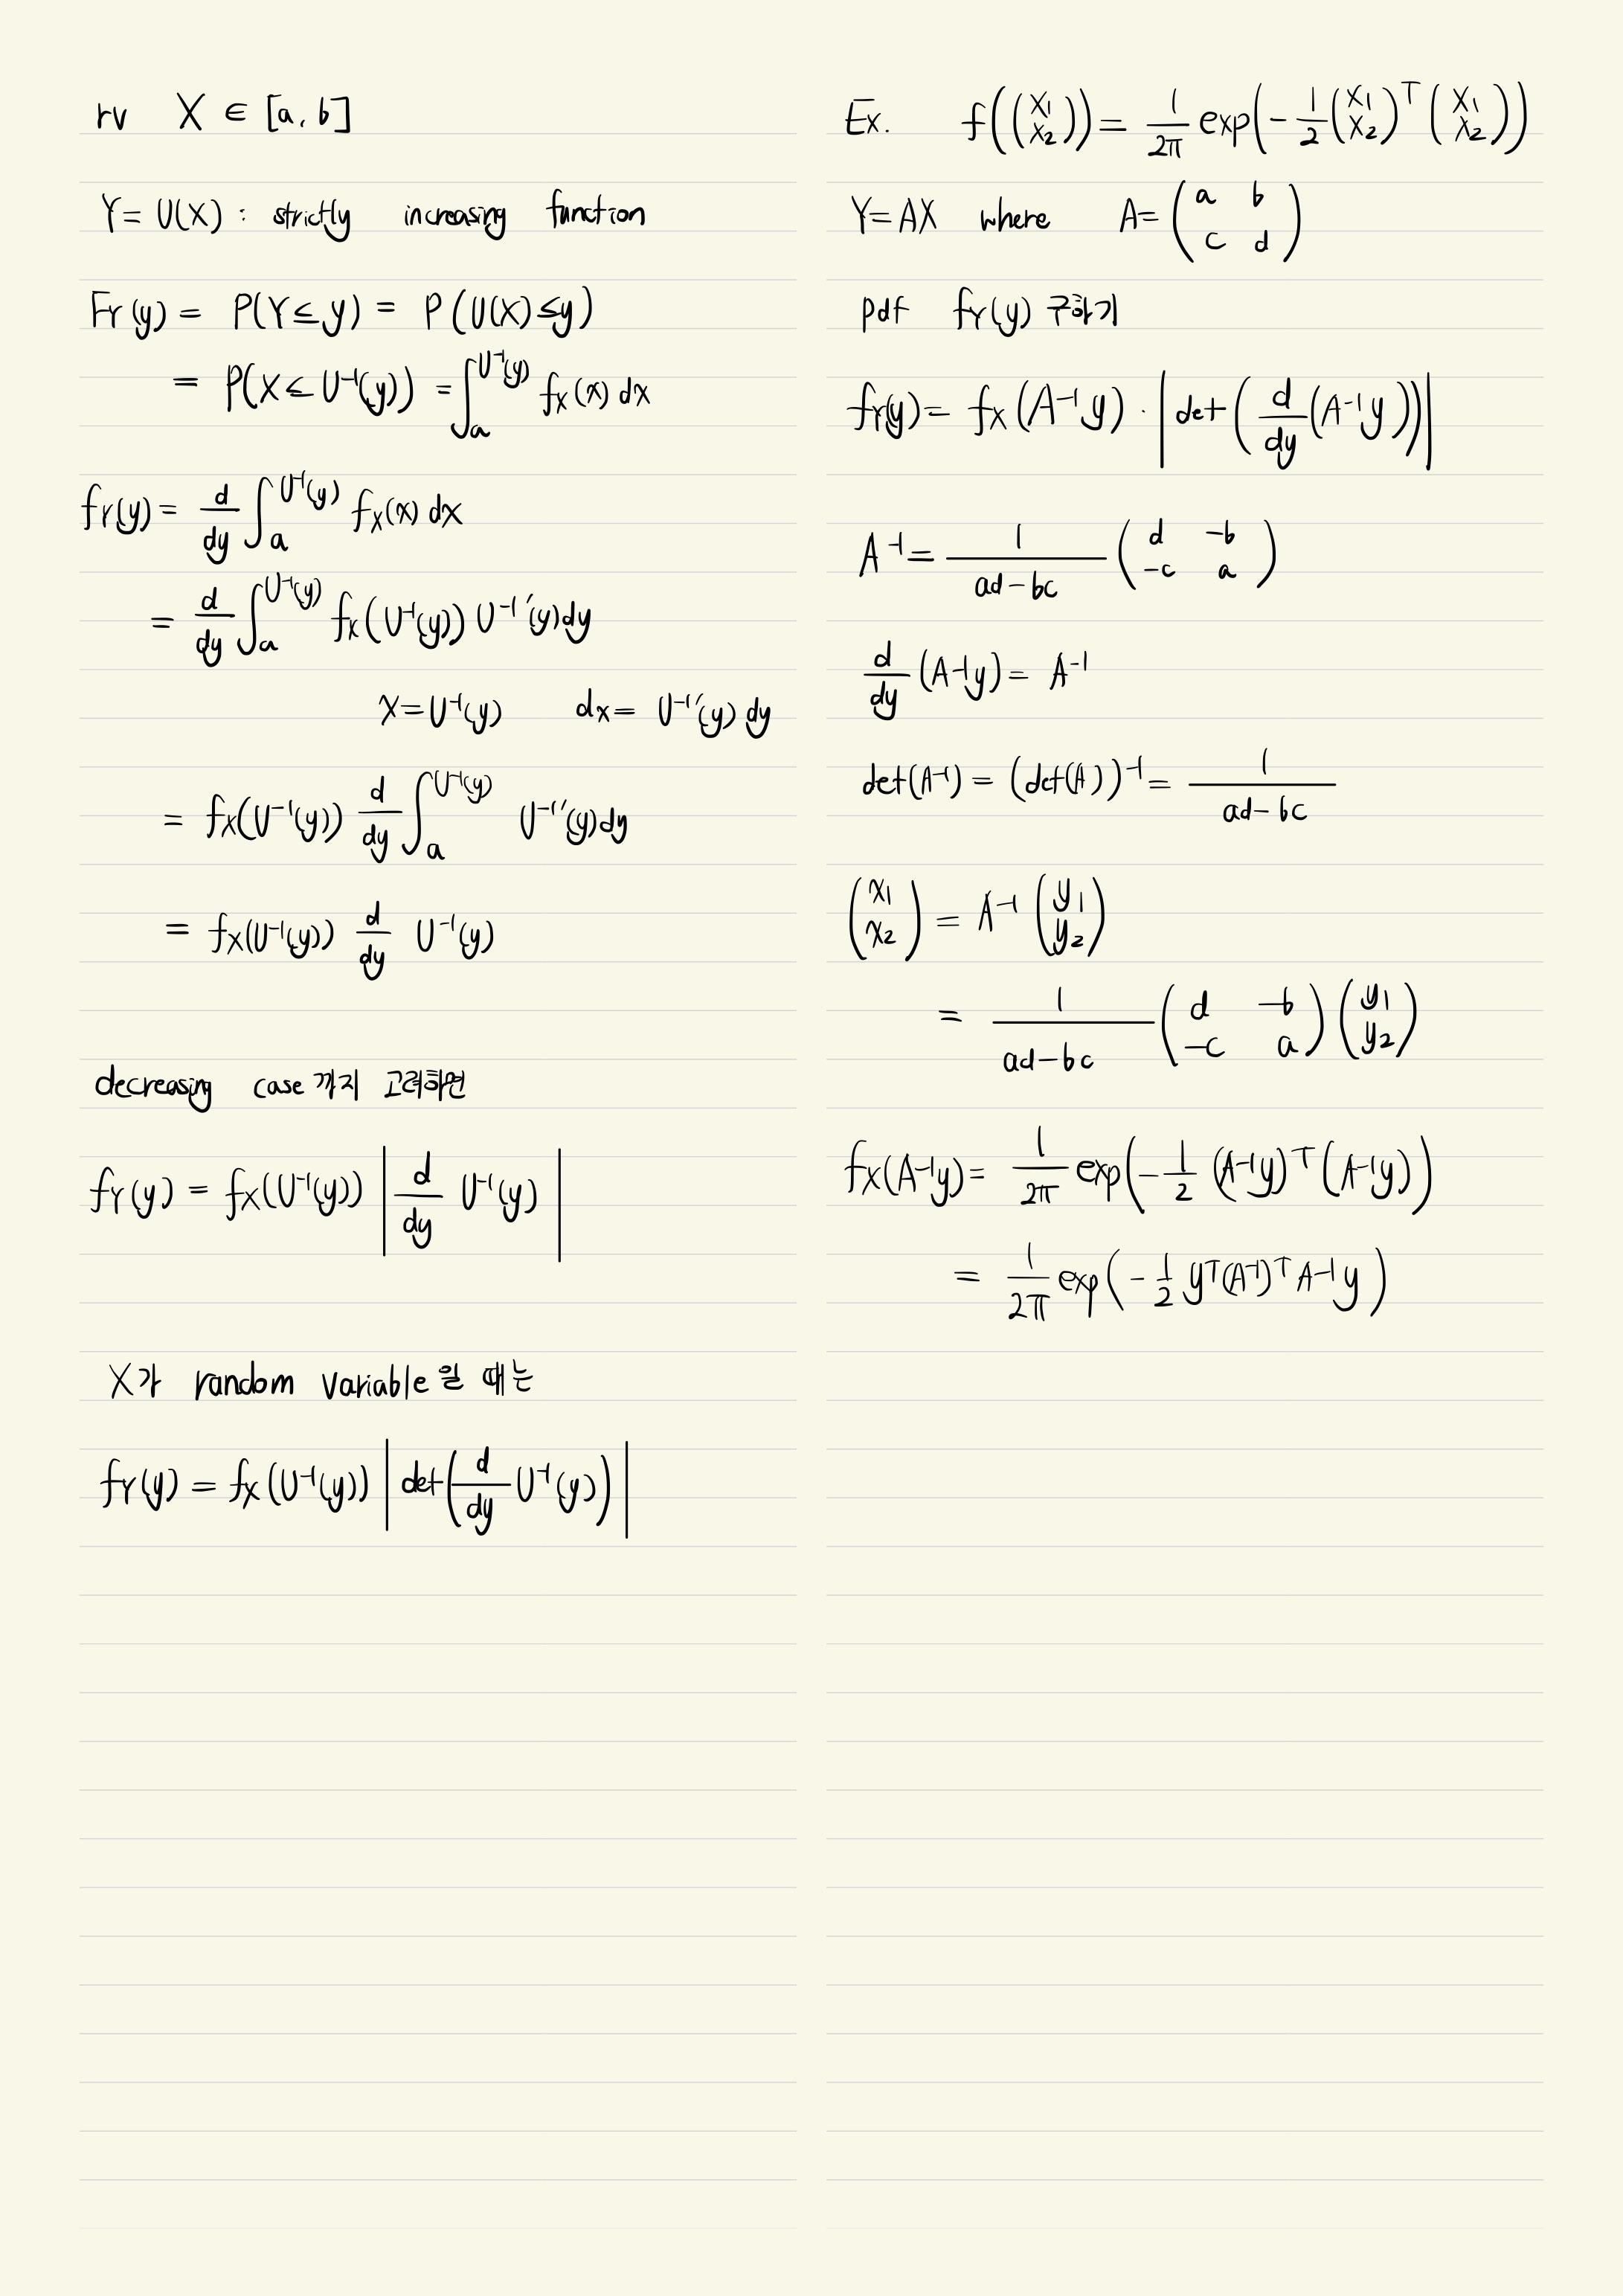 rv X ∈ [a, b]
Y = U(X) : strictly increasing function
F_Y(y) = P(Y ≤ y) = P(U(X) ≤ y)
= P(X ≤ U⁻¹(y)) = ∫_a^{U⁻¹(y)} f_X(x) dx
f_Y(y) = d/dy ∫_a^{U⁻¹(y)} f_X(x) dx
= d/dy ∫_a^{U⁻¹(y)} f_X(U⁻¹(y)) U⁻¹′(y) dy
x = U⁻¹(y) dx = U⁻¹′(y) dy
= f_X(U⁻¹(y)) d/dy ∫_a^{U⁻¹(y)} U⁻¹′(y) dy
= f_X(U⁻¹(y)) d/dy U⁻¹(y)
decreasing case 까지 고려하면
f_Y(y) = f_X(U⁻¹(y)) | d/dy U⁻¹(y) |
X가 random variable일 때는
f_Y(y) = f_X(U⁻¹(y)) | det( d/dy U⁻¹(y) ) |
Ex. f((x₁ x₂)) = 1/2π exp(-1/2 (x₁ x₂)^T (x₁ x₂))
Y = AX where A = (a b
c d)
pdf f_Y(y) 구하기
f_Y(y) = f_X(A⁻¹y) · | det( d/dy (A⁻¹y) ) |
A⁻¹ = 1/(ad-bc) (d -b
-c a)
d/dy (A⁻¹y) = A⁻¹
det(A⁻¹) = (det(A))⁻¹ = 1/(ad-bc)
(x₁ x₂) = A⁻¹ (y₁ y₂)
= 1/(ad-bc) (d -b
-c a) (y₁ y₂)
f_X(A⁻¹y) = 1/2π exp(-1/2 (A⁻¹y)^T (A⁻¹y))
= 1/2π exp(-1/2 y^T (A⁻¹)^T A⁻¹y)